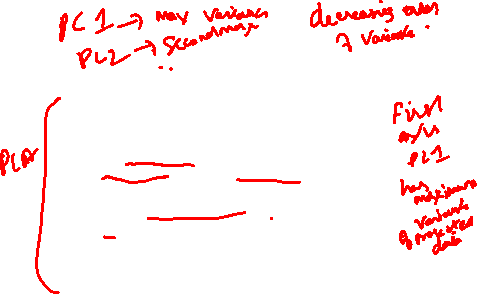 PC 1 → max variance
PC2 → Second max
..
decreasing order
of variance.
PCA
First
axis
PC1
has
maximum
variance
of projected
data